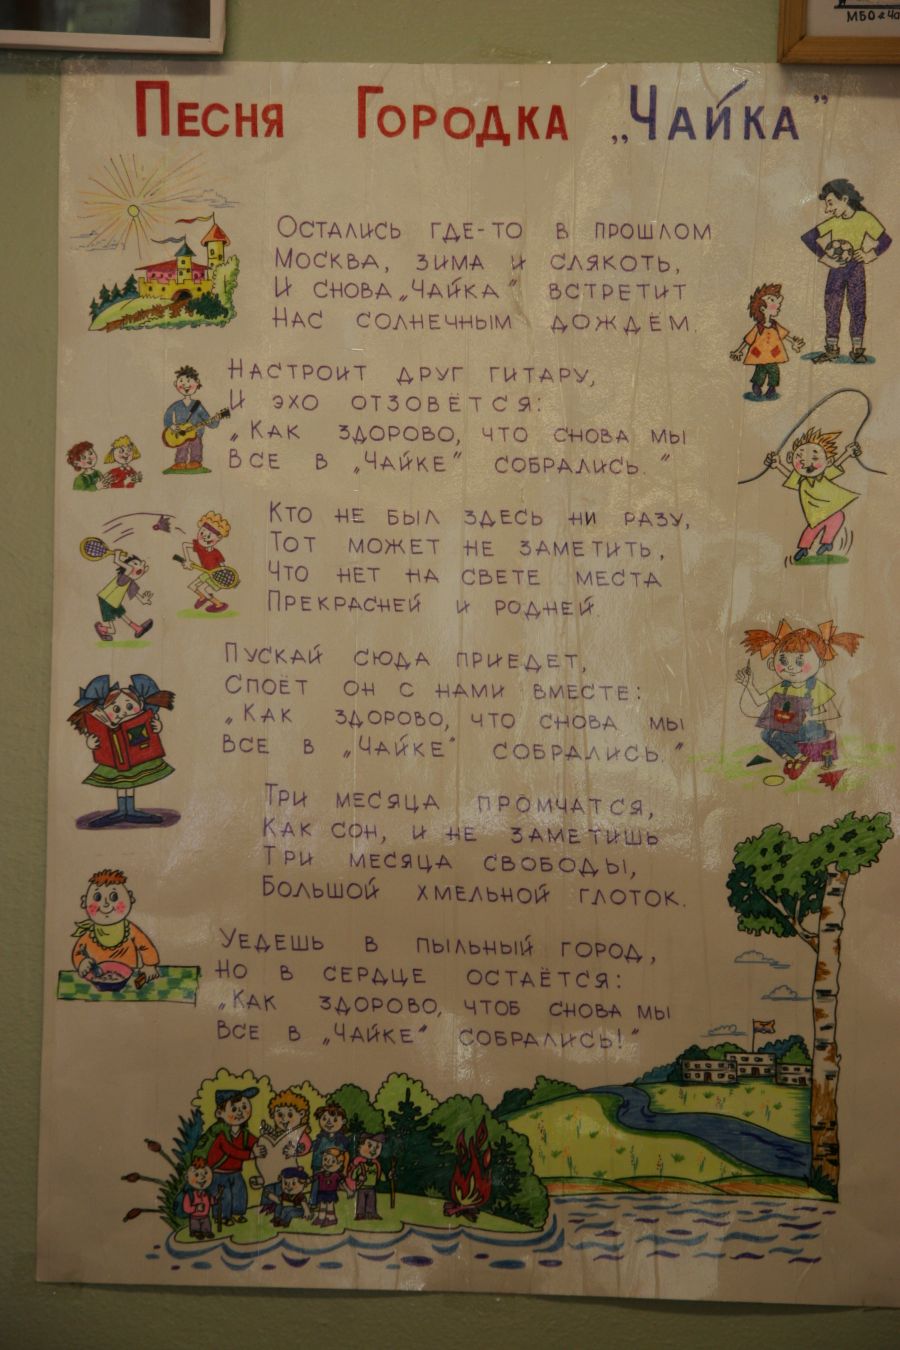 МБО
Песня Городка „Чайка”
Остались где-то в прошлом
Москва, зима и слякоть,
И снова „Чайка” встретит
Нас солнечным дождем.
Настроит друг гитару,
И эхо отзовётся:
„Как здорово, что снова мы
Все в „Чайке” собрались.”
Кто не был здесь ни разу,
Тот может не заметить,
Что нет на свете места
Прекрасней и родней.
Пускай сюда приедет,
Споёт он с нами вместе:
„Как здорово, что снова мы
Все в „Чайке” собрались.”
Три месяца промчатся,
Как сон, и не заметишь
Три месяца свободы,
Большой хмельной глоток.
Уедешь в пыльный город,
Но в сердце остаётся:
„Как здорово, чтоб снова мы
Все в „Чайке” собрались!”